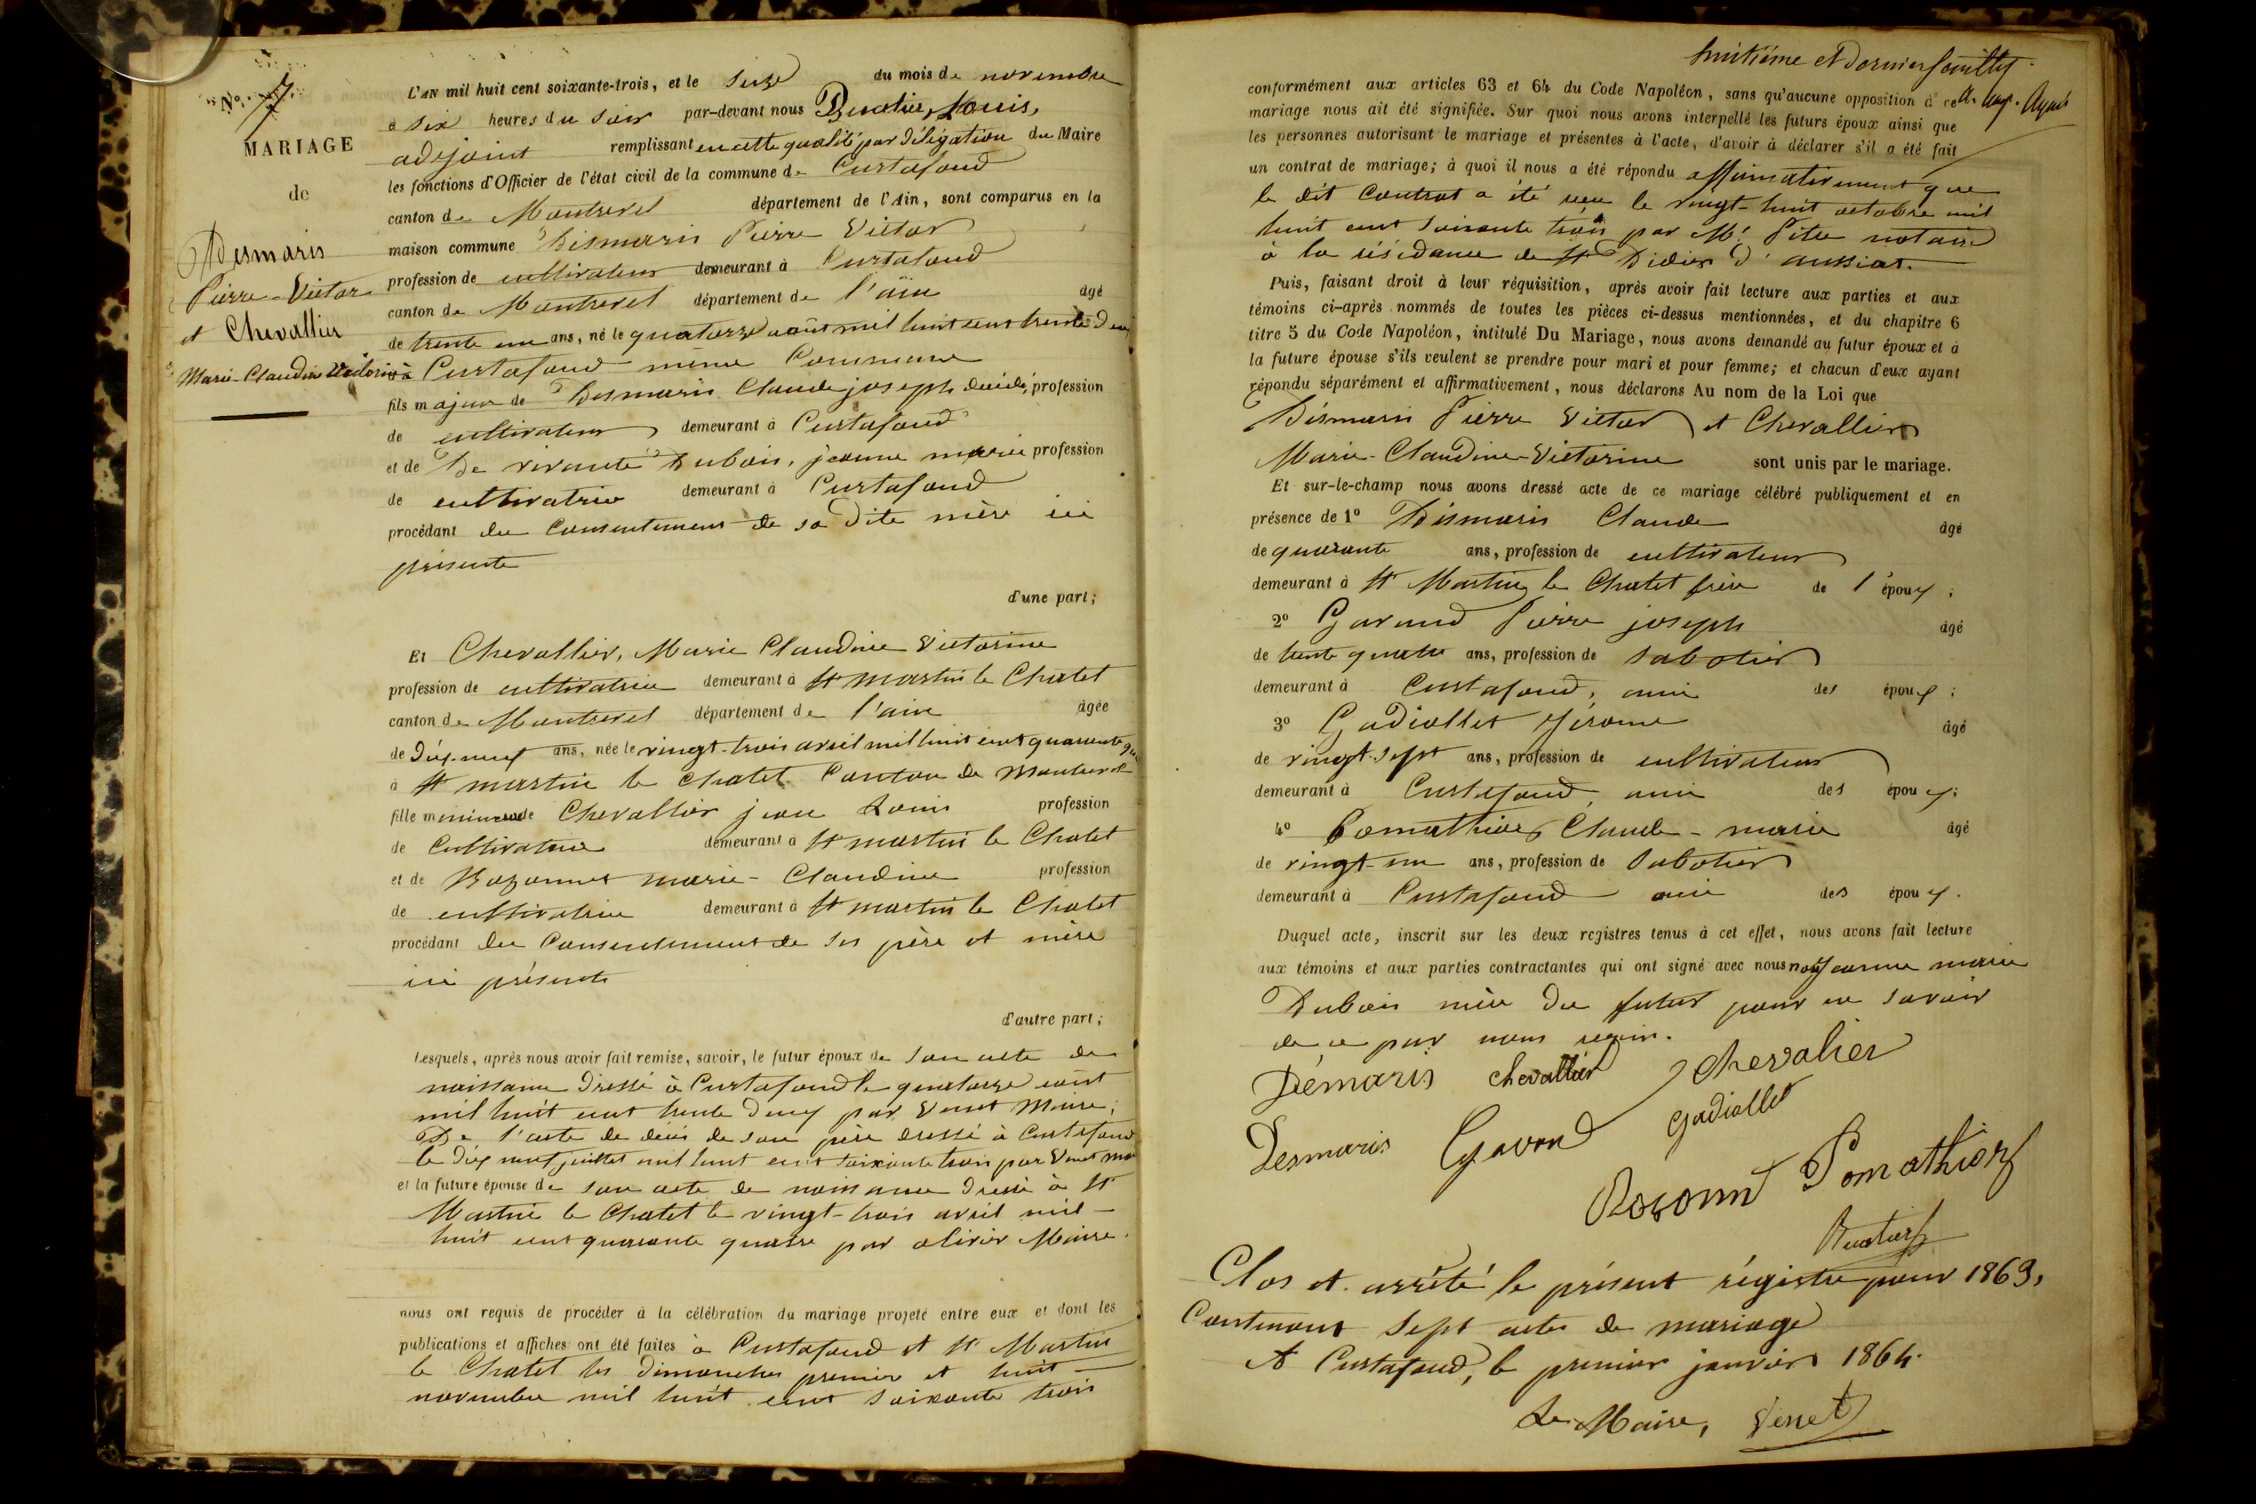 N° 7
MARIAGE
de
Desmaris
Pierre-Victor
et Chevallier
Marie-Claudine Victorine
L'AN mil huit cent soixante-trois, et le seize du mois de novembre
à six heures du soir par-devant nous Buatier, Louis,
adejoint remplissant en cette qualité par délégation du Maire
les fonctions d'Officier de l'état civil de la commune de Curtafond
canton de Montrevel département de l'Ain, sont comparus en la
maison commune Desmaris Pierre Victor
profession de cultivateur demeurant à Curtafond
canton de Montrevel département de l'ain âgé
de trente un ans, né le quatorze août mil huit cent trente deux
à Curtafond même Commune
fils majeur de Desmaris Claude joseph décédé, profession
de cultivateur demeurant à Curtafond
et de De vivante Dubois, jeanne marie profession
de cultivatrice demeurant à Curtafond
procédant du consentement de sa dite mère ici
présente
d'une part;
Et Chevallier, Marie Claudine Victorine
profession de cultivatrice demeurant à St martin le Chatel
canton de Montrevel département de l'ain âgée
de dix-neuf ans, née le vingt-trois avril mil huit cent quarante
à St martin le chatel Canton de Montrevel
fille mineure de Chevallier jean Louis profession
de Cultivateur demeurant à St martin le Chatel
et de Rozonnet marie-Claudine profession
de cultivatrice demeurant à St martin le Chatel
procédant du Consentement de ses père et mère
ici présents
d'autre part;
Lesquels, après nous avoir fait remise, savoir, le futur époux de son acte de
naissance dressé à Curtafond le quatorze août
mil huit cent trente deux par Venet Maire;
De l'acte de décès de son père dressé à Curtafond
le dix neuf juillet mil huit cent soixante trois par Venet
et la future épouse de son acte de naissance dressé à St
Martin le Chatel le vingt-trois avril mil
huit cent quarante quatre par olivier Maire.
nous ont requis de procéder à la célébration du mariage projeté entre eux et dont les
publications et affiches ont été faites à Curtafond et St Martin
le Chatel les dimanches premier et huit
novembre mil huit cent soixante trois
huitième et dernier feuillet.
conformément aux articles 63 et 64 du Code Napoléon, sans qu'aucune opposition à ce
mariage nous ait été signifiée. Sur quoi nous avons interpellé les futurs époux ainsi que
les personnes autorisant le mariage et présentes à l'acte, d'avoir à déclarer s'il a été fait
un contrat de mariage; à quoi il nous a été répondu affirmativement que
le dit Contrat a été reçu le vingt-huit octobre mil
huit cent soixante trois par Me notaire
à la résidence de St Didier d'aussiat.
Puis, faisant droit à leur réquisition, après avoir fait lecture aux parties et aux
témoins ci-après nommés de toutes les pièces ci-dessus mentionnées, et du chapitre 6
titre 5 du Code Napoléon, intitulé Du Mariage, nous avons demandé au futur époux et à
la future épouse s'ils veulent se prendre pour mari et pour femme; et chacun d'eux ayant
répondu séparément et affirmativement, nous déclarons Au nom de la Loi que
Desmaris Pierre Victor et Chevallier
Marie-Claudine-Victorine sont unis par le mariage.
Et sur-le-champ nous avons dressé acte de ce mariage célébré publiquement et en
présence de 1° Desmaris Claude âgé
de quarante ans, profession de cultivateur
demeurant à St Martin le Chatel frère de l'époux;
2° Gavand Pierre joseph âgé
de trente quatre ans, profession de sabotier
demeurant à Curtafond, ami des époux;
3° Gadiollet Jérome âgé
de vingt-sept ans, profession de cultivateur
demeurant à Curtafond, ami des époux;
4° Pomathios Claude-marie âgé
de vingt-un ans, profession de sabotier
demeurant à Curtafond ami des époux.
Duquel acte, inscrit sur les deux registres tenus à cet effet, nous avons fait lecture
aux témoins et aux parties contractantes qui ont signé avec nous non Jeanne marie
Dubois mère du futur pour ne savoir
de ce par nous requis.
Démaris chevallier chevalier
Desmaris Gavand Gadiollet
Pomathios
Buatier
Clos et arrêté le présent régistre pour 1863,
Contenant sept actes de mariage
A Curtafond, le premier janvier 1864.
Le Maire, Venet